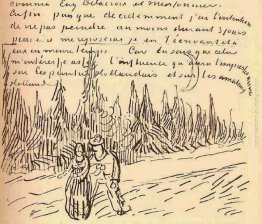 comme Eug Delacroix et Meissonnier.
Enfin puisque decidemment j'ai l'intention
de ne pas peindre au moins durant 3 jours
peut-être me reposerai je en t'écrivant
en même temps Car tu sais que cela
m'intéresse assez l'influence qu'aura l'impressionnisme
sur les peintres Hollandais et sur les amateurs
Hollandais